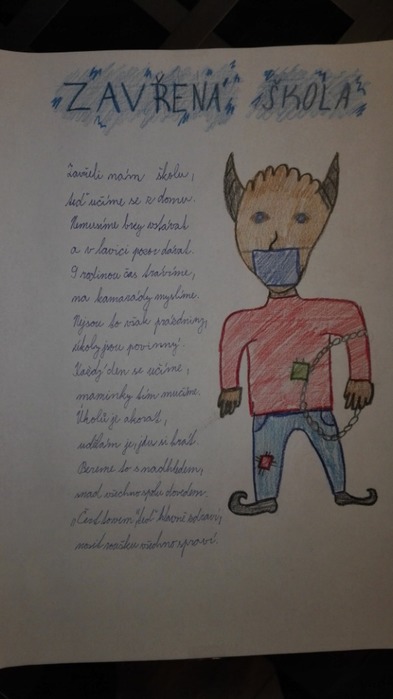 ZAVŘENÁ ŠKOLA
Zavřeli nám školu,
teď učíme se z domu.
Nemusíme brzy vstávat
a v lavici pozor dávat.
S rodinou čas trávíme,
na kamarády myslíme.
Nejsou to však prázdniny,
úkoly jsou povinný.
Každý den se učíme,
maminky tím mučíme.
Úkolů je akorát,
udělám je, jdu si hrát.
Bereme to s nadhledem,
snad všechno spolu dovedem.
"Čert vem" teď hlavně zdraví,
nosit roušku všechno spraví.